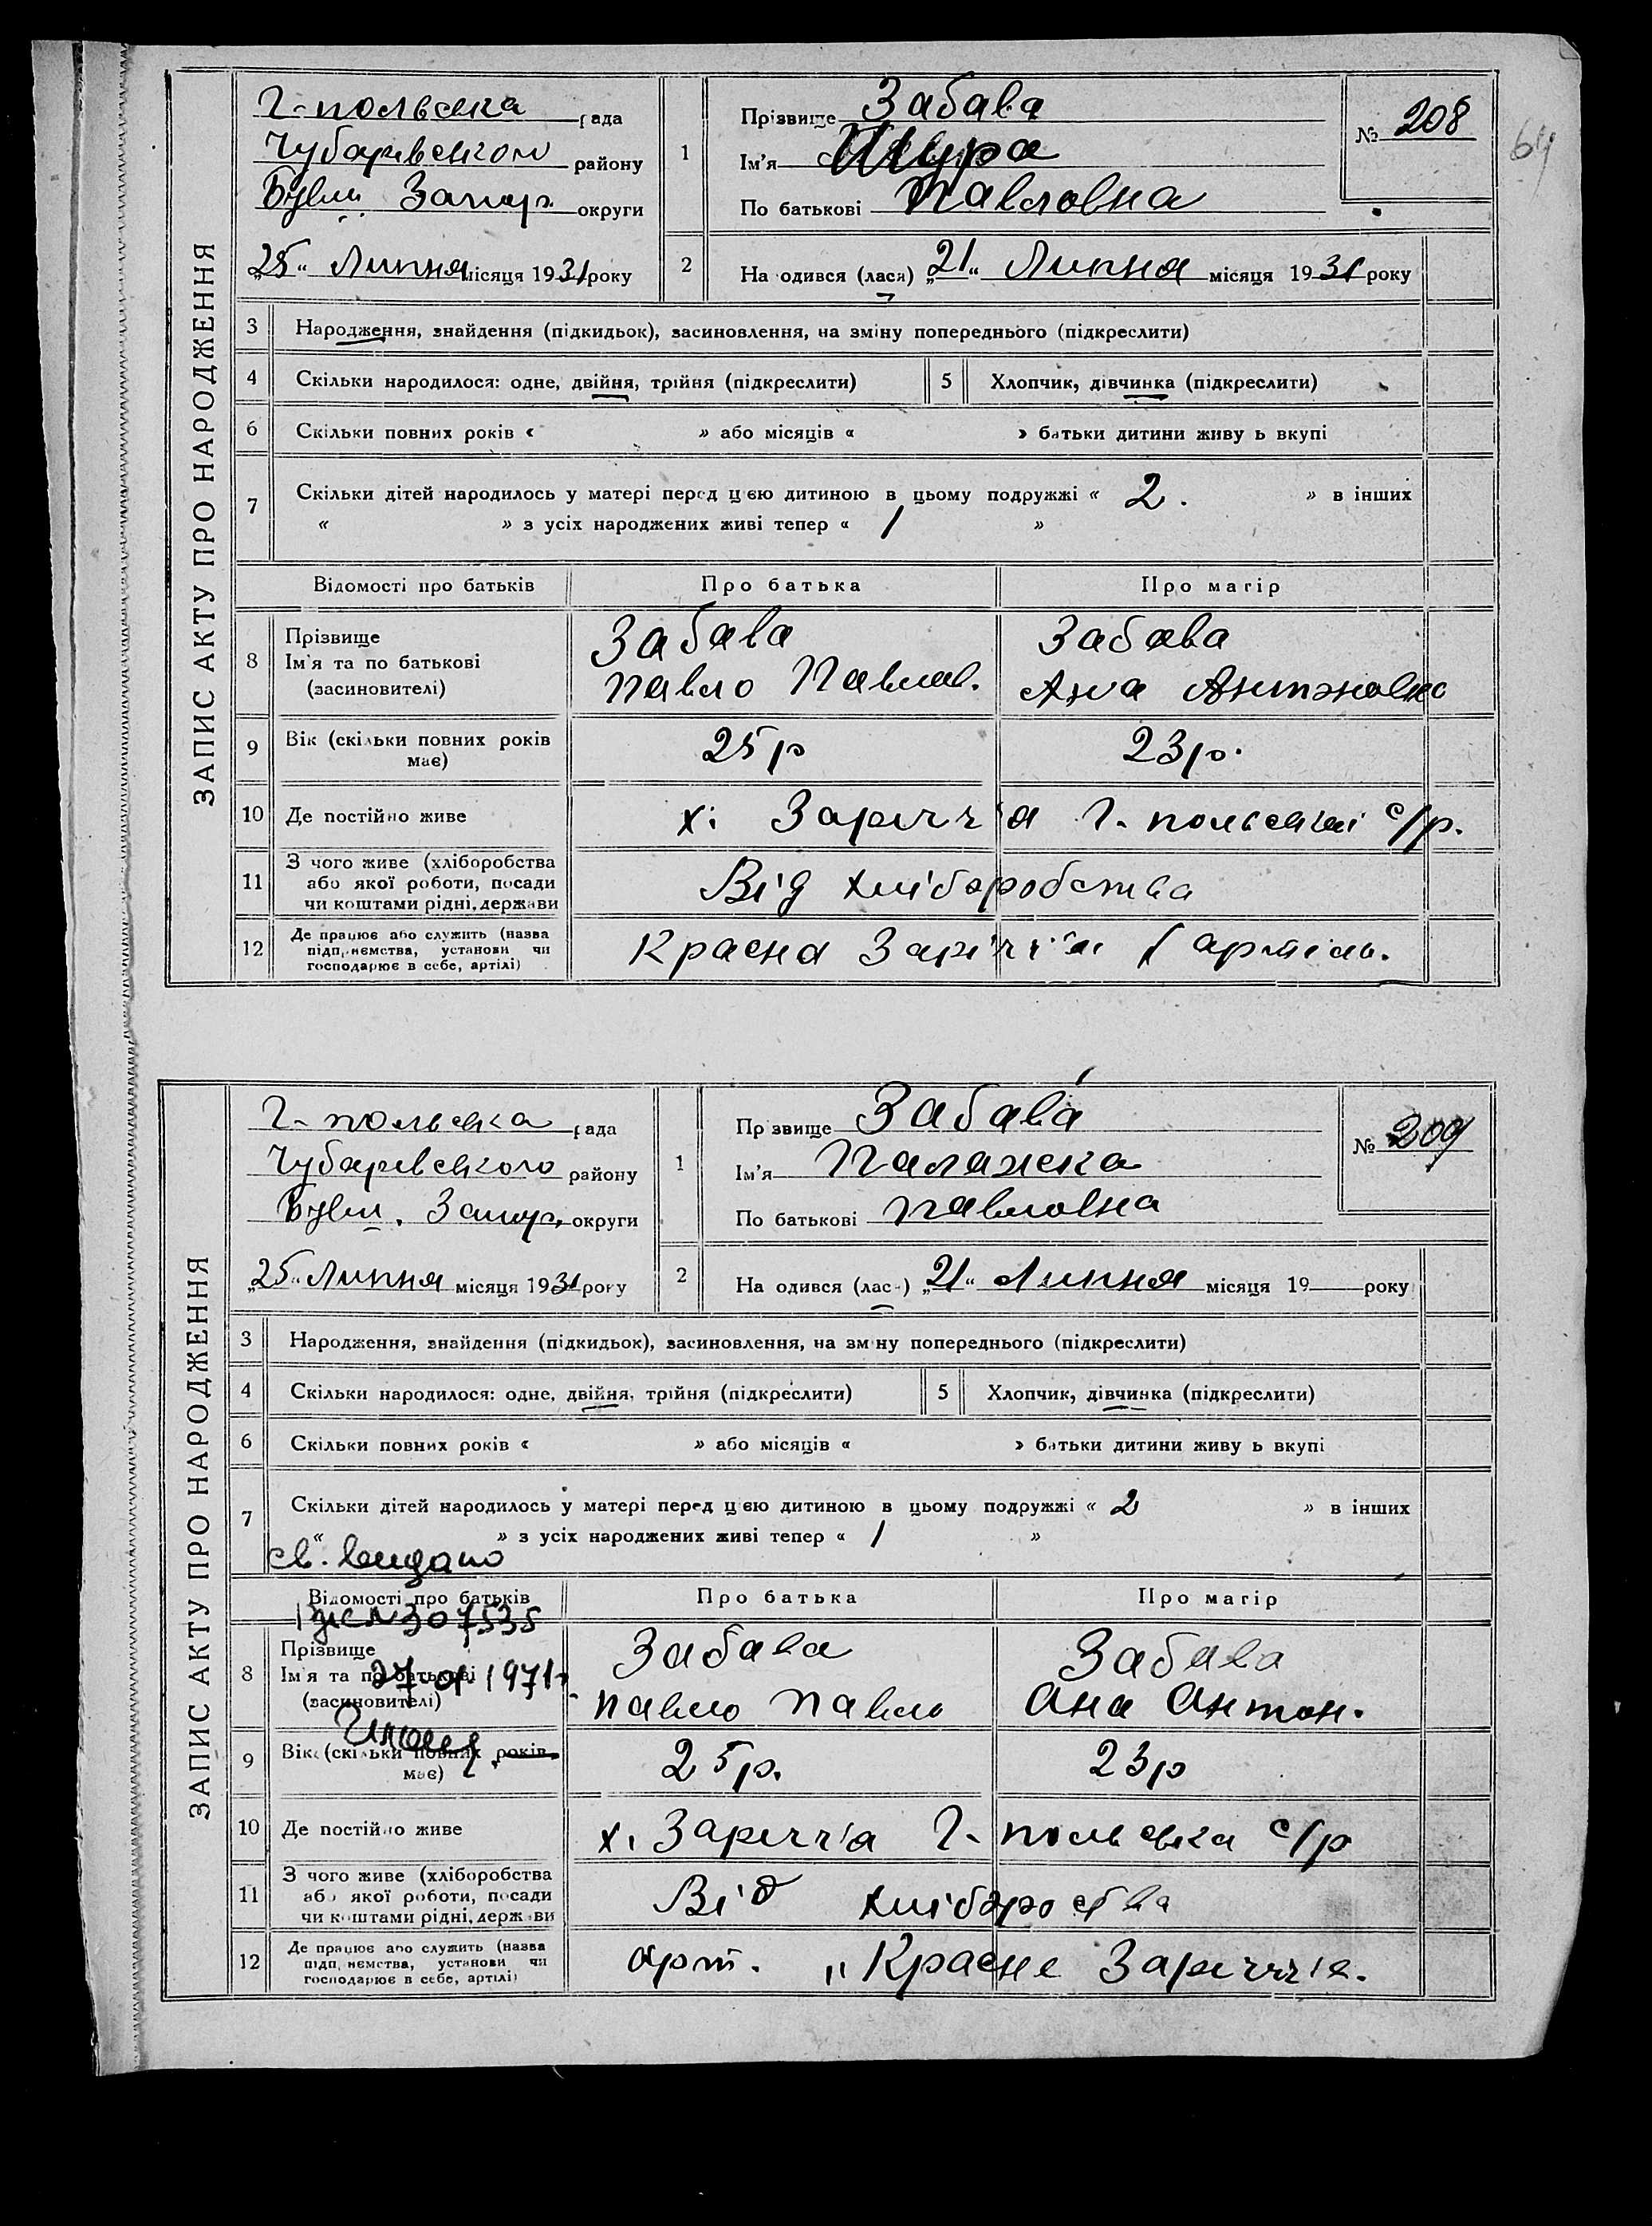 ЗАПИС АКТУ ПРО НАРОДЖЕННЯ
Г-польська рада
Чубарівського району
Бувш. Запор. округи
„25“ Липня місяця 1931 року
1
Прізвище Забава
Ім'я Шура
По батькові Павловна
№ 208
64
2
На одився (лася) „21“ Липня місяця 1931 року
3 Народження, знайдення (підкидьок), засиновлення, на зміну попереднього (підкреслити)
4 Скільки народилося: одне, двійня, трійня (підкреслити)
5 Хлопчик, дівчинка (підкреслити)
6 Скільки повних років « » або місяців « » батьки дитини живу ь вкупі
7 Скільки дітей народилось у матері перед цією дитиною в цьому подружжі « 2. » в інших
« » з усіх народжених живі тепер « 1 »
Відомості про батьків Про батька Про матір
8 Прізвище
Ім'я та по батькові
(засиновителі)
Забава
Павло Павлов.
Забава
Ана Антоновна
9 Вік (скільки повних років має)
25 р
23 р.
10 Де постійно живе
х. Заріччя Г-польської с/р.
11 З чого живе (хліборобства
або якої роботи, посади
чи коштами рідні, держави
Від хліборобства
12 Де працює або служить (назва
підприємства, установи чи
господарює в себе, артілі)
Красна Заріччя артіль.
ЗАПИС АКТУ ПРО НАРОДЖЕННЯ
Г-польська рада
Чубарівського району
Бувш. Запор. округи
„25“ Липня місяця 1931 року
1
Пр звище Забава
Ім'я Палажка
По батькові Павловна
№ 209
2
На одився (лас ) „21“ Липня місяця 19 року
3 Народження, знайдення (підкидьок), засиновлення, на зм ну попереднього (підкреслити)
4 Скільки народилося: одне, двійня, трійня (підкреслити)
5 Хлопчик, дівчинка (підкреслити)
6 Скільки повних років « » або місяців « » батьки дитини живу ь вкупі
7 Скільки дітей народилось у матері перед цією дитиною в цьому подружжі « 2 » в інших
« » з усіх народжених живі тепер « 1 »
св. видано
Відомості про батьків Про батька Про матір
№ 307535
8 Прізвище
Ім'я та по батькові
(засиновителі)
1971р.
Забава
Павло Павло
Забава
Ана Антон.
9 Вік (скільки повних років має)
25 р.
23 р
10 Де постійно живе
х. Заріччя Г-польська с/р
11 З чого живе (хліборобства
або якої роботи, посади
чи коштами рідні, держави
Від хлібороства
12 Де працює або служить (назва
підприємства, установи чи
господарює в себе, артілі)
Арт. „Красне Заріччіе.